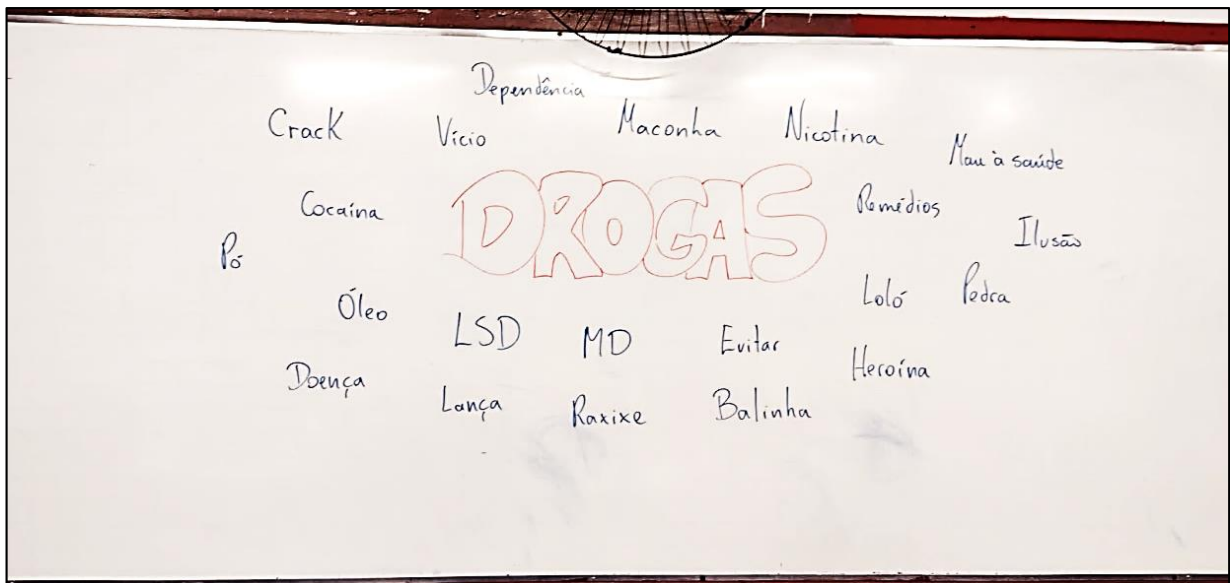 Dependência
Crack
Vício
Maconha
Nicotina
Mau à saúde
Cocaína
DROGAS
Remédios
Ilusão
Pó
Óleo
LSD
MD
Evitar
Loló
Pedra
Doença
Lança
Raxixe
Balinha
Heroína